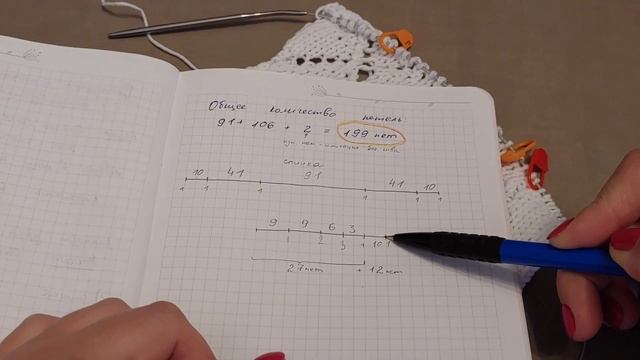 Общее количество петель:
91 + 106 + 2 = 199 пет
спинка
10 41 91 41 10
1 1 1 1 1 1
9 9 6 3
1 2 3 1 10 1
27 пет + 12 пет